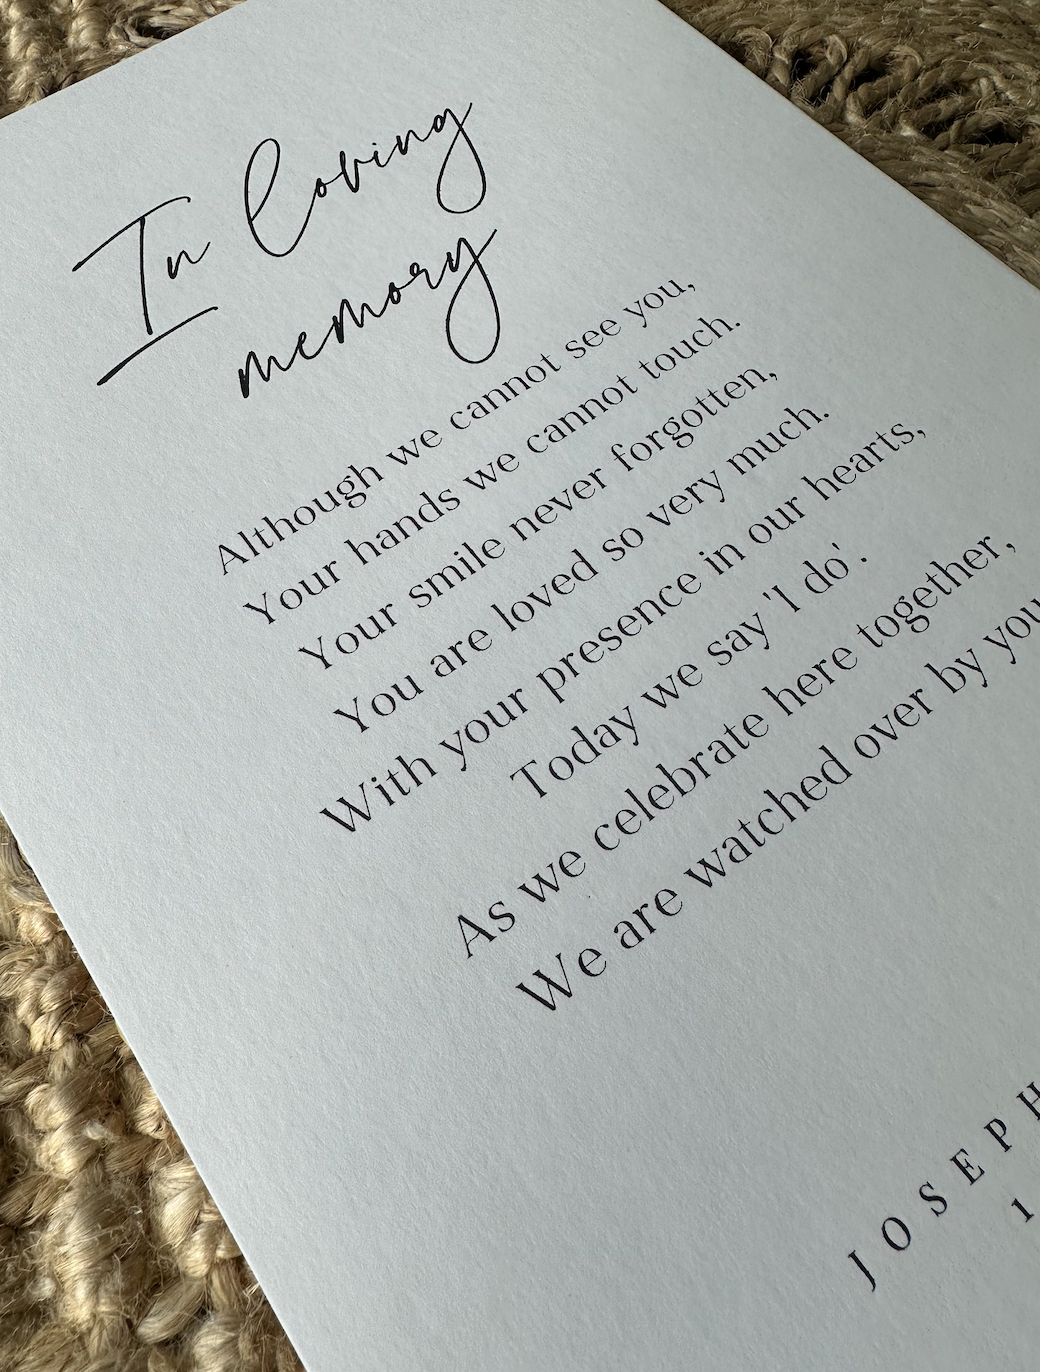 In loving
memory
Although we cannot see you,
Your hands we cannot touch.
Your smile never forgotten,
You are loved so very much.
With your presence in our hearts,
Today we say 'I do'.
As we celebrate here together,
We are watched over by you
JOSEPH
1